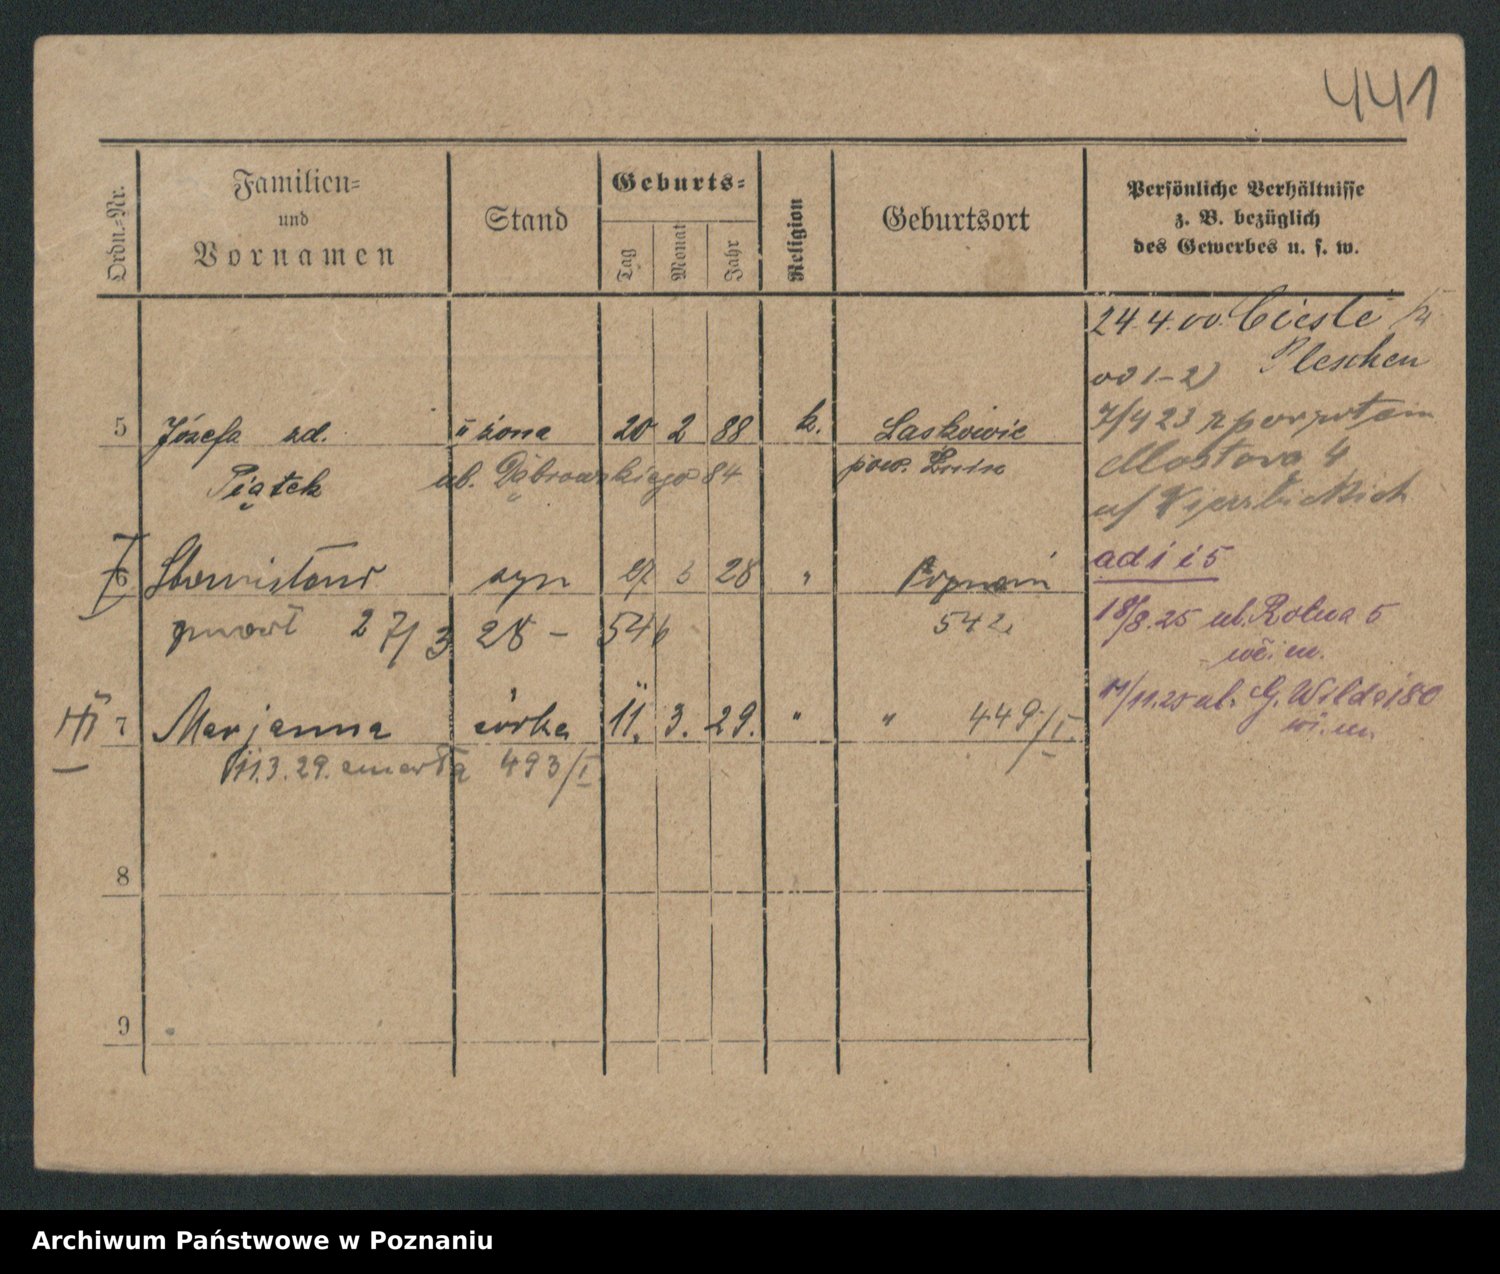 441
Ordn.-Nr.
Familien-
und
Vornamen
Stand
Geburts-
Tag
Monat
Jahr
Religion
Geburtsort
Persönliche Verhältnisse
z. B. bezüglich
des Gewerbes u. s. w.
24.4.00. Pleschen
00 1-2)
5 Józefa zd. II żona 20 2 88 k. Laskowie
Piątek ul. Dąbrowskiego 84 pow. Żnin
7/4 23
Mostowa 4
u/
ad 1 i 5
6 syn 27 3 28 " Poznań
zmarł 27/3 28 - 546 542
18/8.25 ul. Rolna 5
7 Marjanna córka 11. 3. 29. " " 449/I
11.3.29. zmarła 493/I
11/11.25 ul. G. Wilda 180
8
9
Archiwum Państwowe w Poznaniu